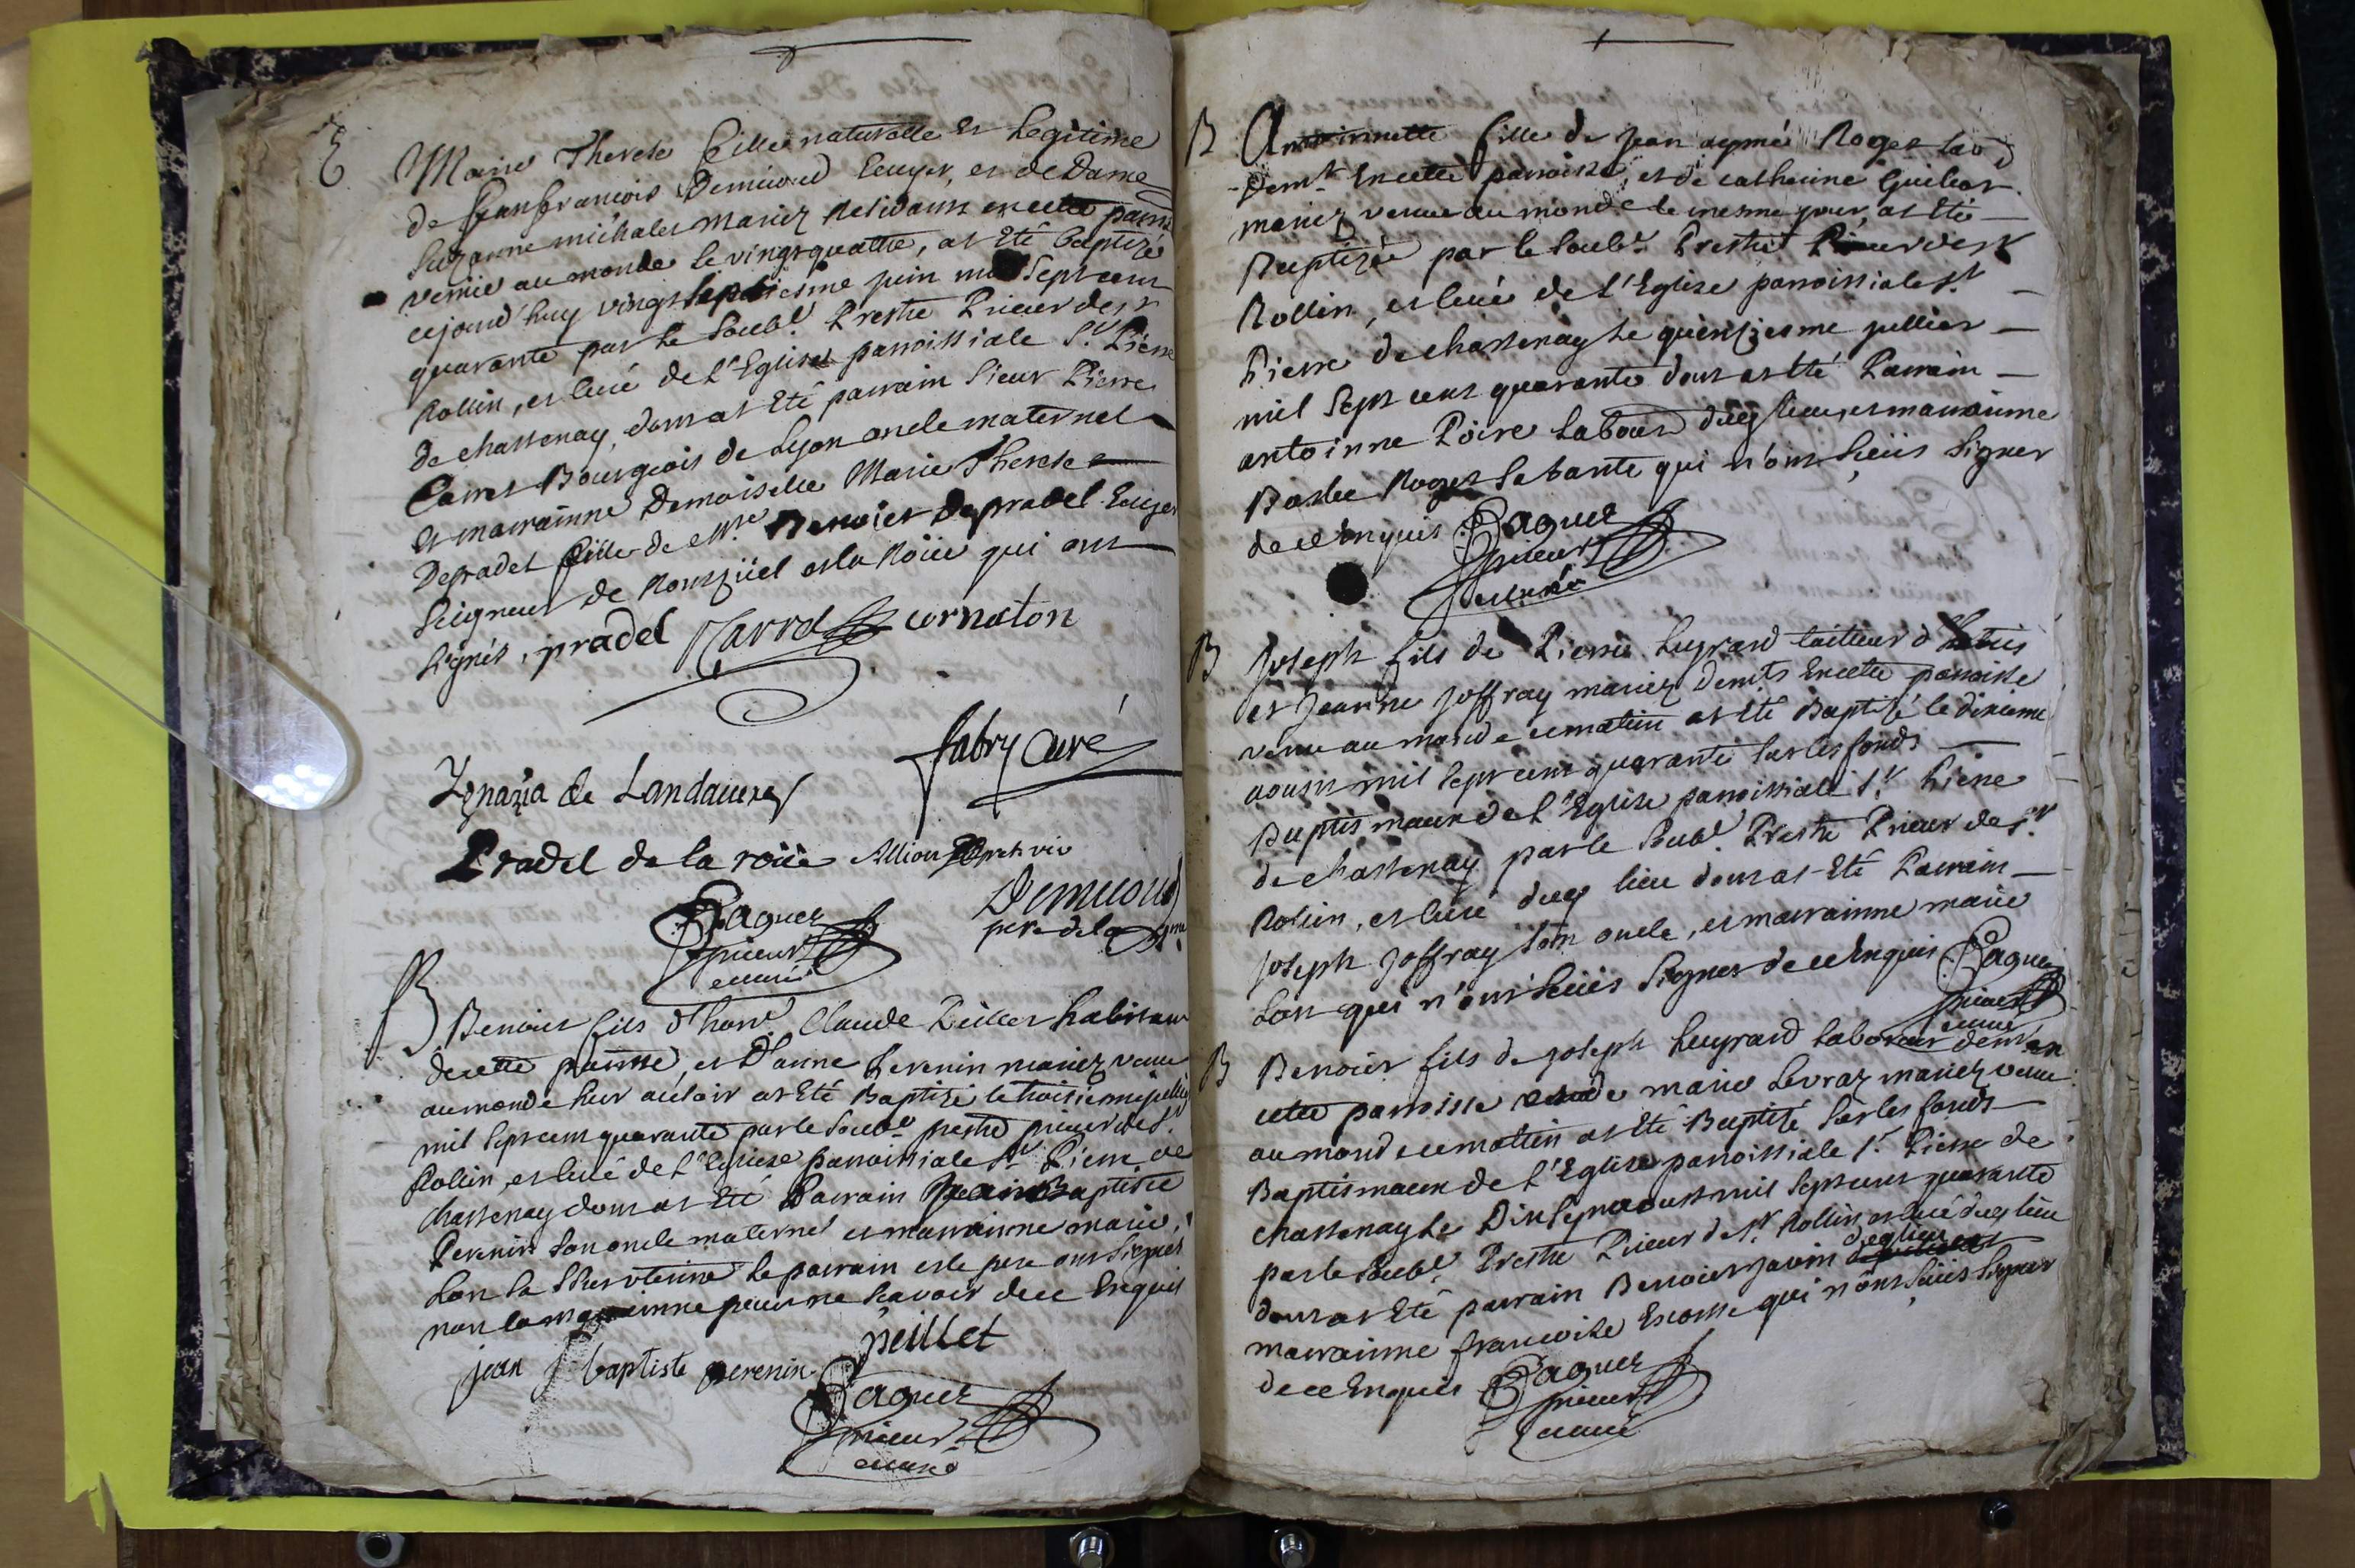 B
Marie Therese fille naturelle et Legitime
de Jeanfrancois Demicoud Ecuyer, et de Dame
Suzanne michalet mariez Residants en cette parois
venüe au monde le vingt quattre, at Eté baptizé
cejourd'huy vingt septiesme juin mil Sept cent
quarante par le Soubl. Prestre Prieur de st
Rollin, et curé de L'Eglise parroissiale St. Pierre
de chassenay, dont at Eté parrain Sieur Pierre
Carret Bourgeois de Lyon oncle maternel
Et marrainne Demoiselle Marie Therese
Depradel fille de Mre Benoist Depradel Ecuyer
Seigneur de et la Roüe qui ont
signés, pradel Carret cornaton
fabry curé
Ignazia de Landauer
Pradel de la roüe Allion
Demicoud
pere de la
Paguet
prieur
et curé
B
Benoist fils d'hon. Claude Peillet habitant
de cette paroisse, et D'anne Perenin mariez venu
au monde hier au soir at Eté Baptizé le troisieme juillet
mil Sept cent quarante par le Soubl prestre prieur de St.
Rollin, et curé de l'Eglise parroissiale St Pierre de
chassenay dont at Eté Parrain Jean Baptiste
Perenin son oncle maternel et marrainne marie
Lon Sa Sœur vterine le parrain et le pere ont signés
non la marrainne pour ne scavoir de ce Enquis
peillet
jean baptiste perenin
Paguet
prieur
et curé
B
Antoinette fille de Jean aymé Roget Labd
demt. En cette paroisse, et de catherine Guillot
mariez venue au monde le mesme jour, at Eté
Baptizée par le Soubl. Prestre Prieur de st
Rollin, et curé de L'Eglise parroissiale St.
Pierre de chassenay Le quinziesme juillet
mil Sept cent quarante dont at Eté Parrain
antoinne Poire Laboud dud lieu, et marrainne
Roget Sa tante qui n'ont sceüs signer
de ce Enquis Paguet
prieur
et curé
B
Joseph fils de Pierre Lugrand tailleur d'habis
et Jeanne Joffray mariez demts En cette paroisse
venu au monde ce matin at Eté Baptizé le dixieme
aoust mil Sept cent quarante sur les fonds
Baptismaux de L'Eglise parroissiale St. Pierre
de chassenay par le Soubl. Prestre Prieur de St.
Rollin, et curé dud lieu dont at Eté Parrain
Joseph Joffray son oncle, et marrainne marie
Lon qui n'ont sceüs signer de ce Enquis Paguet
prieur
et curé
B
Benoist fils de Joseph Lugrand Laboreur demt en
cette paroisse et de marie Levrat mariez venu
au monde ce matin at Eté Baptizé sur les fonds
Baptismaux de L'Eglise parroissiale St. Pierre de
chassenay Le aoust mil Sept cent quarante
par le Soubl. Prestre Prieur de St. Rollin, et curé dud lieu
dont at Eté parrain Benoist Javin dud lieu
marrainne francoise Escosse qui n'ont sceüs signer
de ce Enquis Paguet
prieur
et curé